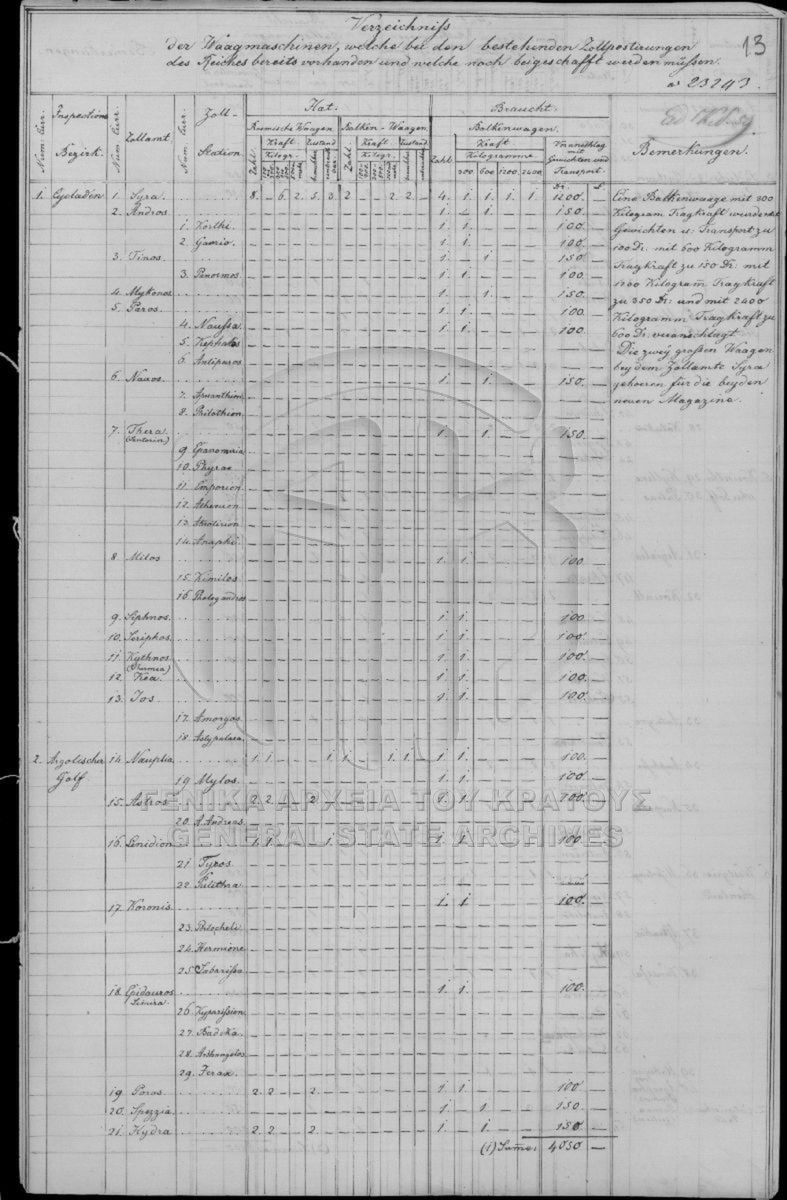 Verzeichniß
der Waagmaschinen, welche bei den bestehenden Zollpostirungen
des Reiches bereits vorhanden und welche noch beigeschafft werden müssen.
13
ad 23243.
Num. Curr. Inspections Bezirk. Num. Curr. Zollamt Num. Curr. Zoll-Station
Hat.
Roemische Waagen Balken-Waagen
Zahl. Kraft Kilogr. Zustand
Zahl. Kraft Kilogr. Zustand
Braucht.
Balkenwagen.
Zahl. Kraft Kilogramme 300. 600 1200. 2400
Voranschlag mit Gewichten und Transport.
Dr. L
Bemerkungen.
1. Cycladen 1. Syra. 8. — 6. 2. 5. 3. 2 — — 2. 2. — 4. 1. 1. 1. 1. 1200. —
2. Andros 1. — 1. — — 150. —
1. Korthi. 1. 1. — — — 100. —
2. Gavrio. 1. 1. — — — 100. —
3. Tinos. 1. — 1. — — 150. —
3. Panormos. 1. 1. — — — 100. —
4. Mykonos. 1. — 1. — — 150. —
5. Paros. 1. 1. — — — 100. —
4. Naussa. 1. 1. — — — 100. —
5. Kephalos
6. Antiparos
6. Naxos. 1. — 1. — — 150. —
7. Apranthim.
8. Philothion.
7. Thera. 1. — 1. — — 150. —
(Santorin)
9. Epanomiria
10. Phyrae
11. Emporion.
12. Athenion
13. Akrotirion
14. Anaphi.
8 Milos 1. 1. — — — 100. —
15. Kimilos
16. Pholegandros
9. Siphnos. 1. 1. — — — 100. —
10. Seriphos. 1. 1. — — — 100. —
11. Kythnos. 1. 1. — — — 100. —
(Thermia)
12. Kea. 1. 1. — — — 100. —
13. Jos 1. 1. — — — 100. —
17. Amorgos.
18. Astypalaea.
2. Argolischer Golf. 14. Nauplia. 1. 1. — — — 1. 1. — — 1. 1. — 1. 1. — — — 100. —
19 Mylos. 1. 1. — — — 100. —
15. Astros 2. 2. — — 2. — 1. 1. — — — 100. —
20. A. Andreas.
16. Lenidion 1. 1. — — — 1. 1. 1. — — — 100. —
21. Tyros.
22. Pulithra
17. Koronis. 1. 1. — — — 100. —
23. Phlocheli
24. Hermione
25. Sabarissa
18. Epidauros. 1. 1. — — — 100. —
26. Kyparission.
27. Badika.
28. Archangelos
29. Jerax.
19. Poros. 2. 2. — — 2. — 1. 1. — — — 100. —
20. Spezzia. 1. — 1. — — 150. —
21. Hydra 2. 2. — — 2. — 1. — 1. — — 150. —
(1) Summe: 4050. —
Eine Balkenwaage mit 300
Kilogram. Tragkraft wurde mit
Gewichten u: Transport zu
100 Dr. mit 600 Kilogramm
Tragkraft zu 150 Dr: mit
1200 Kilogram̅ Tragkraft
zu 350 Dr: und mit 2400
Kilogramm Tragkraft zu
600 Dr. veranschlagt.
Die zwey großen Waagen
bey dem Zollamte Syra
gehoeren für die beyden
neuen Magazine.
ΓΕΝΙΚΑ ΑΡΧΕΙΑ ΤΟΥ ΚΡΑΤΟΥΣ
GENERAL STATE ARCHIVES